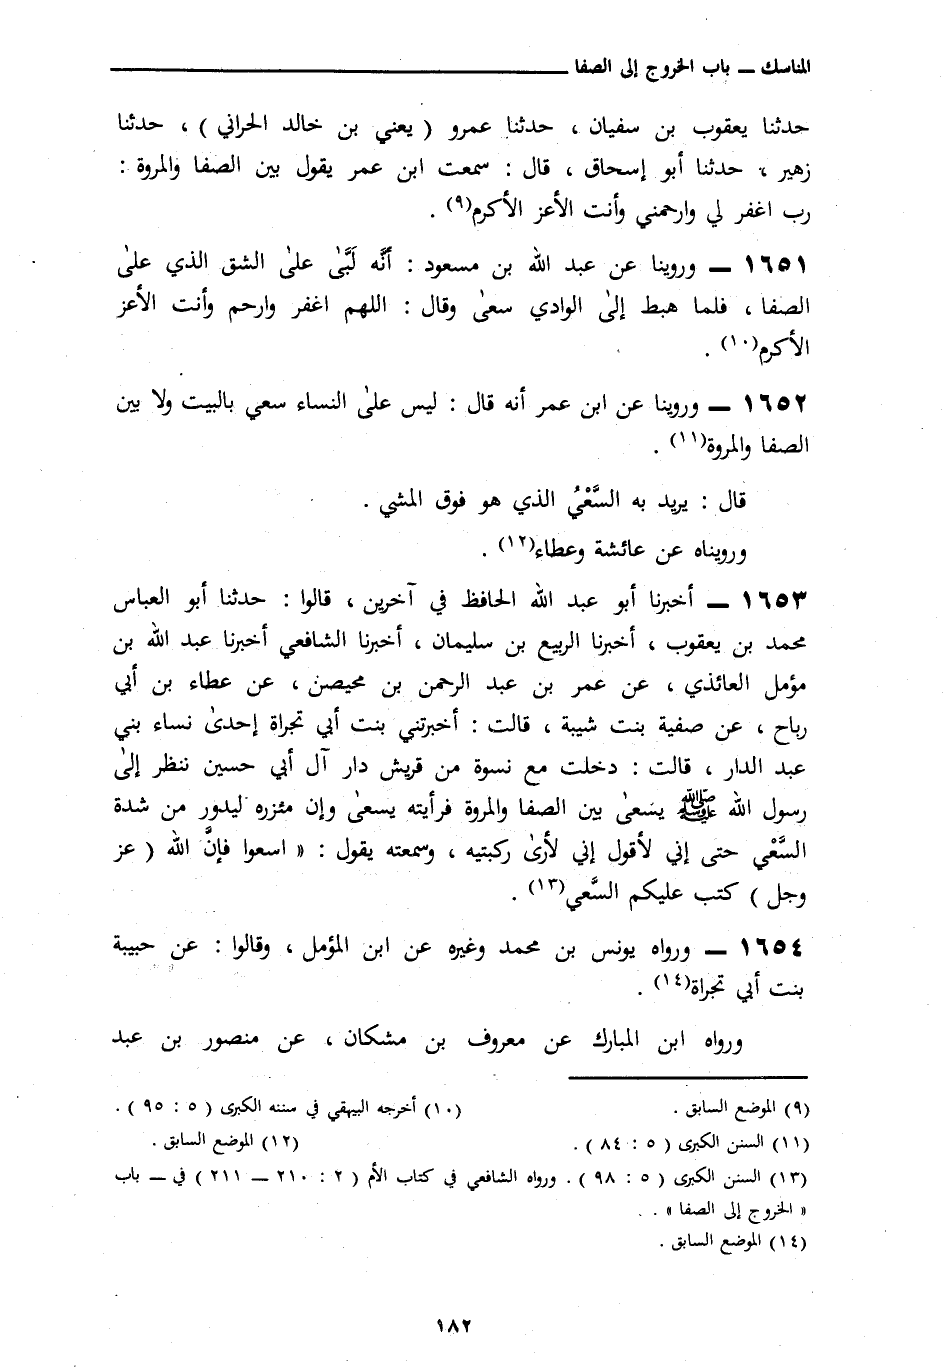 المناسك ــ باب الخروج إلى الصفا
حدثنا يعقوب بن سفيان ، حدثنا عمرو ( يعني بن خالد الحراني ) ، حدثنا
زهير ، حدثنا أبو إسحاق ، قال : سمعت ابن عمر يقول بين الصفا والمروة :
رب اغفر لي وارحمني وأنت الأعز الأكرم(٩) .
١٦٥١ ــ وروينا عن عبد الله بن مسعود : أنَّه لَبَّىٰ علىٰ الشق الذي علىٰ
الصفا ، فلما هبط إلىٰ الوادي سعىٰ وقال : اللهم اغفر وارحم وأنت الأعز
الأكرم(١٠) .
١٦٥٢ ــ وروينا عن ابن عمر أنه قال : ليس علىٰ النساء سعي بالبيت ولا بين
الصفا والمروة(١١) .
قال : يريد به السَّعْيُ الذي هو فوق المشي .
ورويناه عن عائشة وعطاء(١٢) .
١٦٥٣ ــ أخبرنا أبو عبد الله الحافظ في آخرين ، قالوا : حدثنا أبو العباس
محمد بن يعقوب ، أخبرنا الربيع بن سليمان ، أخبرنا الشافعي أخبرنا عبد الله بن
مؤمل العائذي ، عن عمر بن عبد الرحمن بن محيصن ، عن عطاء بن أبي
رباح ، عن صفية بنت شيبة ، قالت : أخبرتني بنت أبي تجراة إحدىٰ نساء بني
عبد الدار ، قالت : دخلت مع نسوة من قريش دار آل أبي حسين ننظر إلىٰ
رسول الله ﷺ يسعىٰ بين الصفا والمروة فرأيته يسعىٰ وإن مئزره ليدور من شدة
السَّعْي حتى إني لأقول إني لأرىٰ ركبتيه ، وسمعته يقول : « اسعوا فإنَّ الله ( عز
وجل ) كتب عليكم السَّعي(١٣) .
١٦٥٤ ــ ورواه يونس بن محمد وغيره عن ابن المؤمل ، وقالوا : عن حبيبة
بنت أبي تجراة(١٤) .
ورواه ابن المبارك عن معروف بن مشكان ، عن منصور بن عبد
(٩) الموضع السابق . (١٠) أخرجه البيهقي في سننه الكبرى ( ٥ : ٩٥ ) .
(١١) السنن الكبرى ( ٥ : ٨٤ ) . (١٢) الموضع السابق .
(١٣) السنن الكبرى ( ٥ : ٩٨ ) . ورواه الشافعي في كتاب الأم ( ٢ : ٢١٠ ــ ٢١١ ) في ــ باب
« الخروج إلى الصفا » .
(١٤) الموضع السابق .
١٨٢